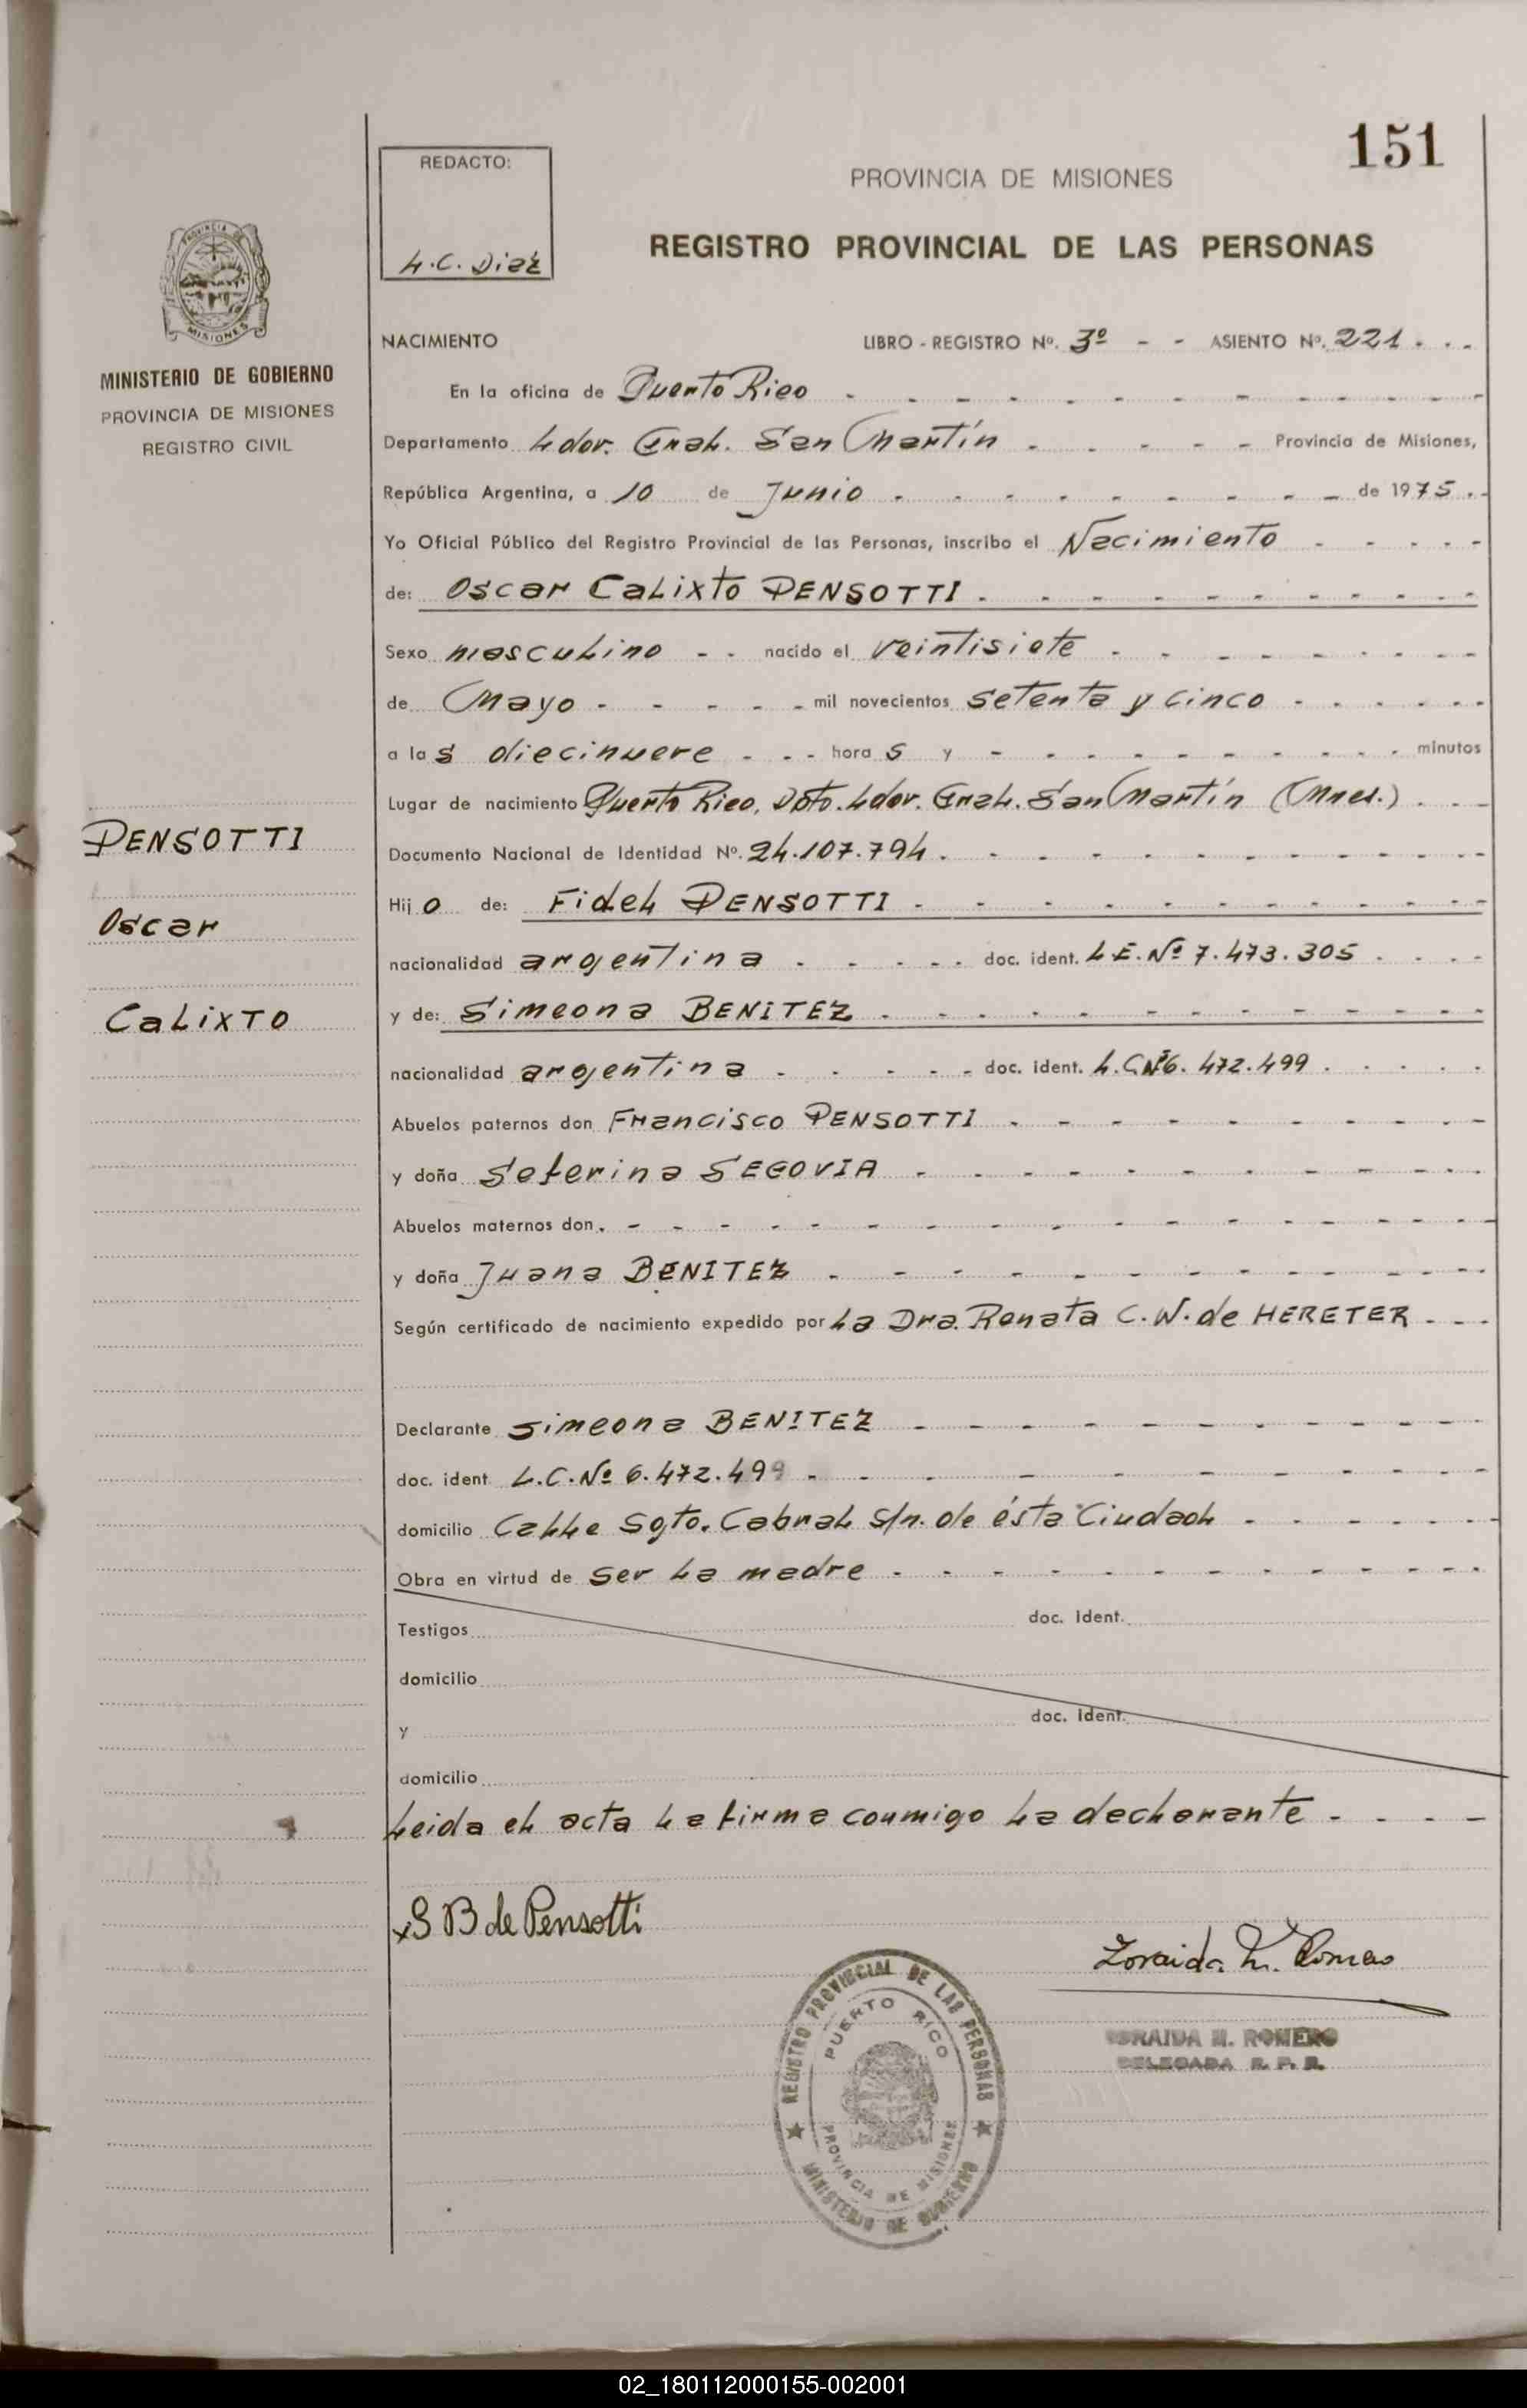 151
REDACTO:
L.C. Diaz
PROVINCIA DE MISIONES
REGISTRO PROVINCIAL DE LAS PERSONAS
PROVINCIA DE
MISIONES
MINISTERIO DE GOBIERNO
PROVINCIA DE MISIONES
REGISTRO CIVIL
NACIMIENTO LIBRO - REGISTRO Nº. 3º - - ASIENTO Nº. 221 . . .
En la oficina de Puerto Rico
Departamento Ldor. Gral. San Martín Provincia de Misiones,
República Argentina, a 10 de Junio de 1975 .
Yo Oficial Público del Registro Provincial de las Personas, inscribo el Nacimiento
de: Oscar Calixto PENSOTTI
Sexo masculino nacido el veintisiete
de Mayo mil novecientos setenta y cinco
a las diecinueve horas y - minutos
Lugar de nacimiento Puerto Rico, Dpto. Ldor. Gral. San Martín (Mnes.)
Documento Nacional de Identidad Nº. 24.107.794
Hijo de: Fidel PENSOTTI
nacionalidad argentina doc. ident. L.E. Nº 7.473.305
y de: Simeona BENITEZ
nacionalidad argentina doc. ident. L.C.Nº6.472.499
Abuelos paternos don Francisco PENSOTTI
y doña Seferina SEGOVIA
Abuelos maternos don . - - -
y doña Juana BENITEZ
Según certificado de nacimiento expedido por La Dra. Renata C.W. de HERETER
Declarante Simeona BENITEZ
doc. ident. L.C. Nº 6.472.499
domicilio Calle Sgto. Cabral s/n. de ésta Ciudad
Obra en virtud de ser la madre
Testigos doc. Ident.
domicilio
y doc. Ident.
domicilio
Leida el acta la firma conmigo la declarante
PENSOTTI
Oscar
CALIXTO
x S B de Pensotti
Zoraida M. Romero
ZORAIDA M. ROMERO
DELEGADA R. P. P.
REGISTRO PROVINCIAL DE LAS PERSONAS
PUERTO RICO
PROVINCIA DE MISIONES
MINISTERIO DE GOBIERNO
02_180112000155-002001